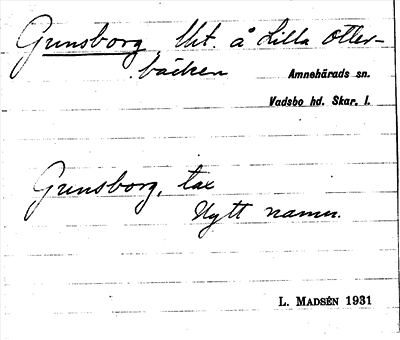 Grunsborg, lht. å Lilla Otter-
bäcken
Amnehärads sn.
Vadsbo hd. Skar. l.
Grunsborg, tax
Nytt namn.
L. MADSÉN 1931